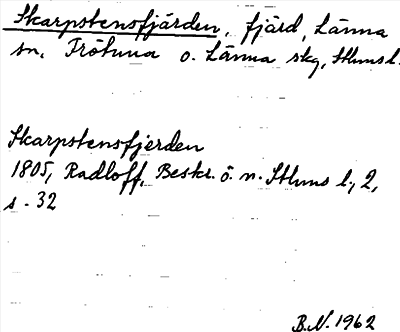 Skarpstensfjärden, fjärd, Länna
sn, Frötuna o. Länna skg, Sthms l.
Skarpstensfjerden
1805, Radloff, Beskr. ö. n. Sthms l., 2,
s. 32
B.N. 1962